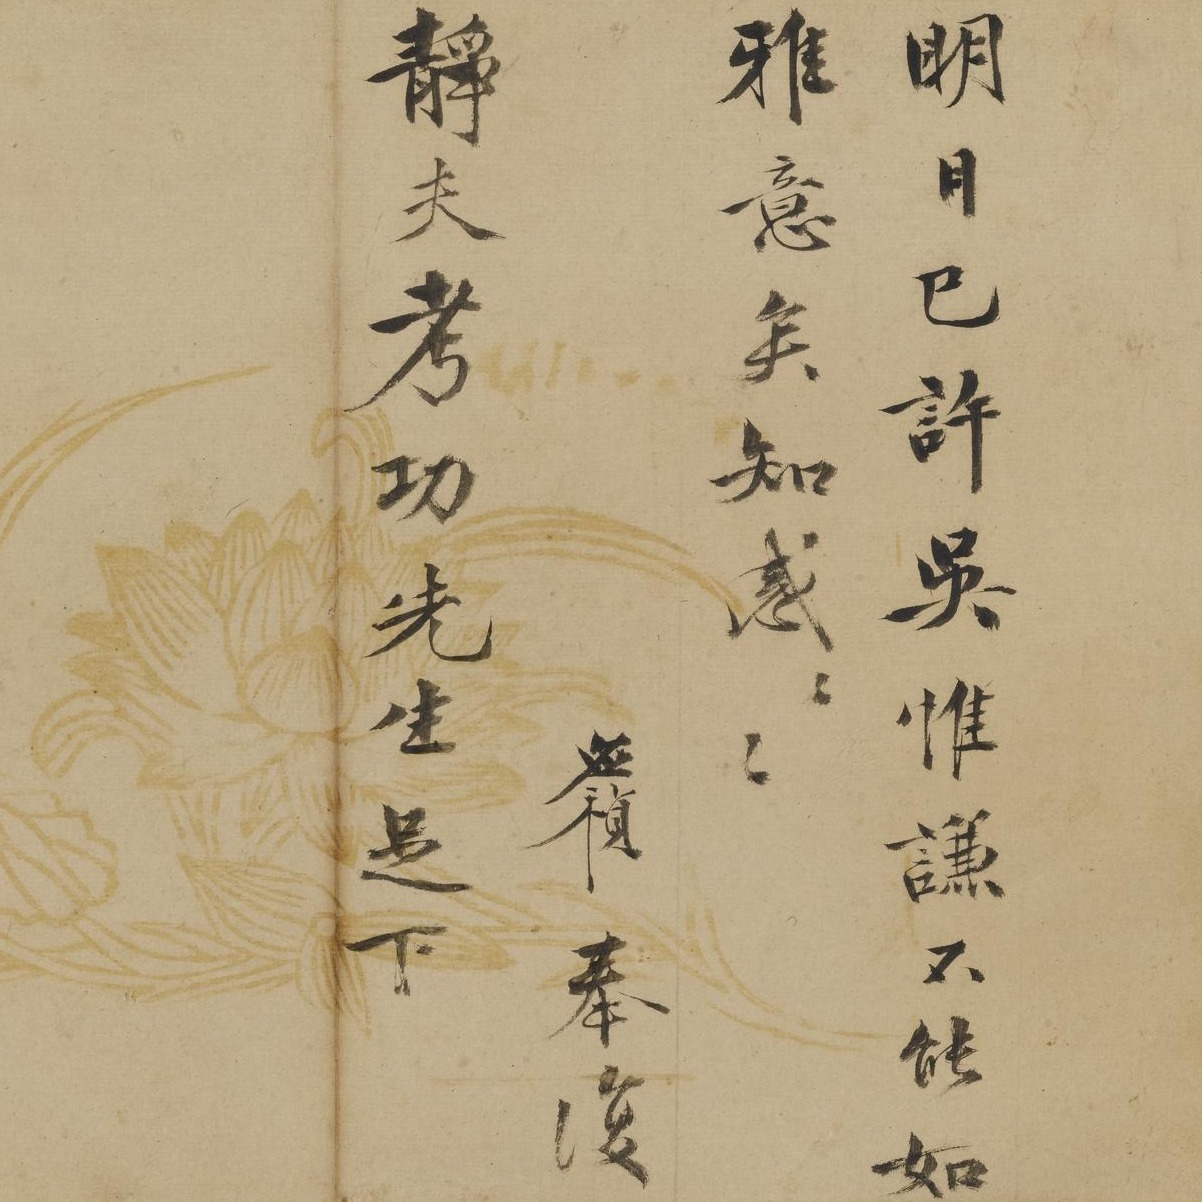 明日已許吳惟謙不能如
雅意矣知感〻〻
應禎奉復
靜夫考功先生足下